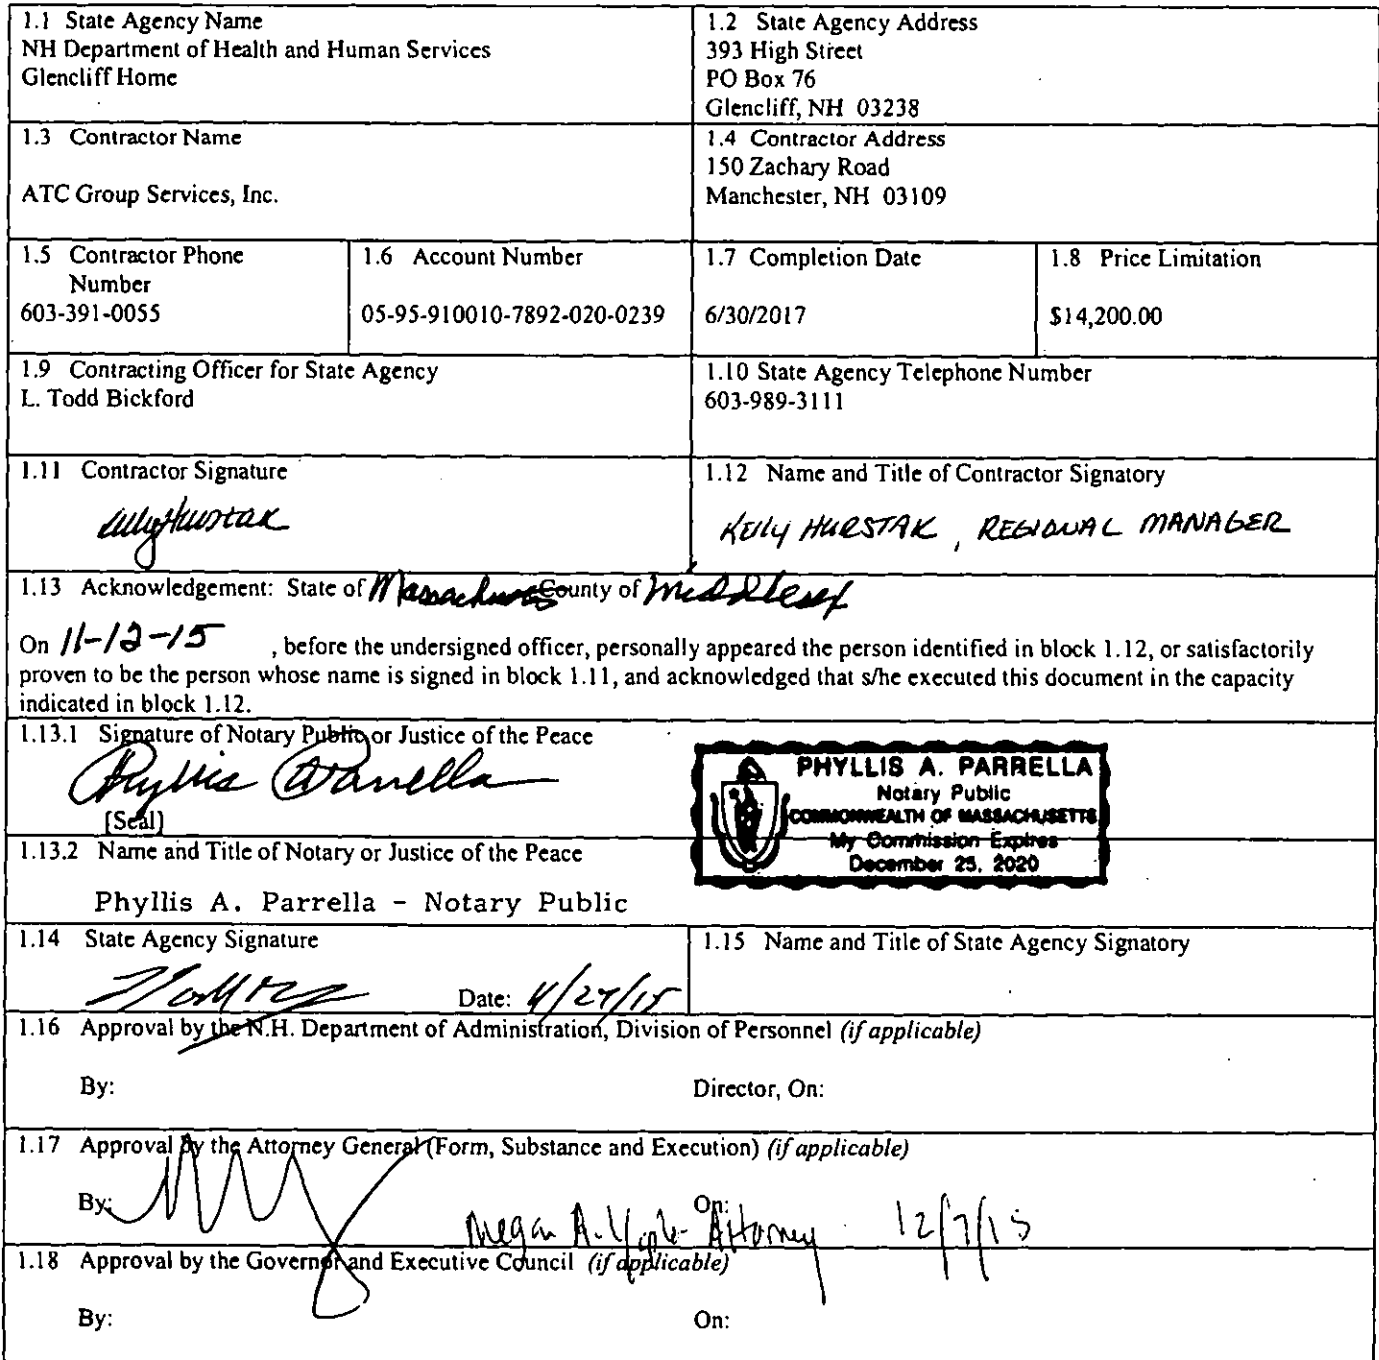 1.1 State Agency Name
NH Department of Health and Human Services
Glencliff Home
1.2 State Agency Address
393 High Street
PO Box 76
Glencliff, NH 03238
1.3 Contractor Name
ATC Group Services, Inc.
1.4 Contractor Address
150 Zachary Road
Manchester, NH 03109
1.5 Contractor Phone
Number
603-391-0055
1.6 Account Number
05-95-910010-7892-020-0239
1.7 Completion Date
6/30/2017
1.8 Price Limitation
$14,200.00
1.9 Contracting Officer for State Agency
L. Todd Bickford
1.10 State Agency Telephone Number
603-989-3111
1.11 Contractor Signature
1.12 Name and Title of Contractor Signatory
KELLY HURSTAK, REGIONAL MANAGER
1.13 Acknowledgement: State of Massachusetts County of Middlesex
On 11-12-15 , before the undersigned officer, personally appeared the person identified in block 1.12, or satisfactorily
proven to be the person whose name is signed in block 1.11, and acknowledged that s/he executed this document in the capacity
indicated in block 1.12.
1.13.1 Signature of Notary Public or Justice of the Peace
Phyllis A Parrella
[Seal]
PHYLLIS A. PARRELLA
Notary Public
COMMONWEALTH OF MASSACHUSETTS
My Commission Expires
December 25, 2020
1.13.2 Name and Title of Notary or Justice of the Peace
Phyllis A. Parrella - Notary Public
1.14 State Agency Signature
Date:
1.15 Name and Title of State Agency Signatory
1.16 Approval by the N.H. Department of Administration, Division of Personnel (if applicable)
By:
Director, On:
1.17 Approval by the Attorney General (Form, Substance and Execution) (if applicable)
By:
On:
Megan A. Attorney 12/7/15
1.18 Approval by the Governor and Executive Council (if applicable)
By:
On: